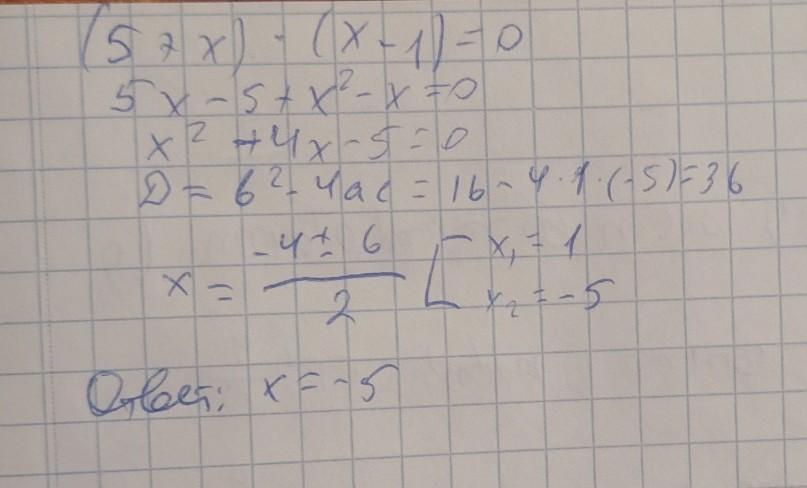 (5 + x) · (x - 1) = 0
5x - 5 + x² - x = 0
x² + 4x - 5 = 0
D = b² - 4ac = 16 - 4·1·(-5) = 36
x = (-4 ± 6) / 2 [ x₁ = 1
x₂ = -5
Ответ: x = -5